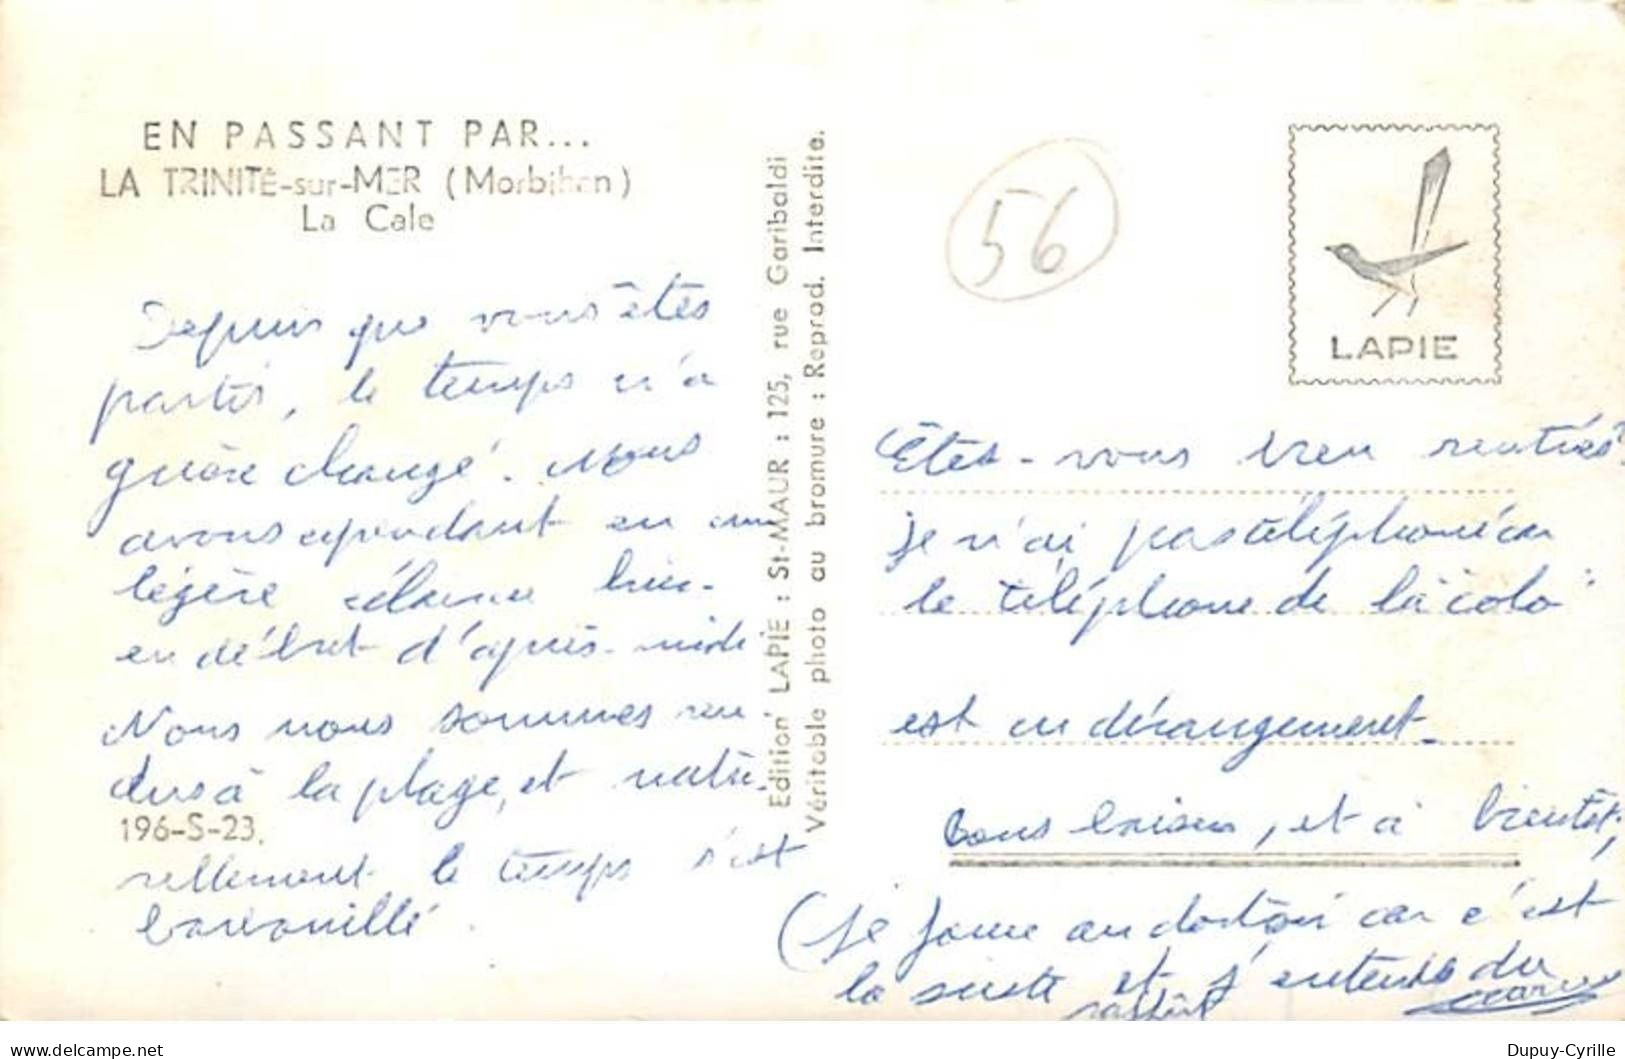 EN PASSANT PAR...
LA TRINITÉ-sur-MER (Morbihan)
La Cale
Depuis que vous êtes
partis, le temps n'a
guère changé. Nous
avons cependant eu une
légère éclaircie hier
en début d'après-midi
Nous nous sommes ren-
dus à la plage, et natu-
196-S-23.
rellement le temps s'est
barbouillé
Edition LAPIE : St-MAUR : 125, rue Garibaldi
Véritable photo au bromure : Reprod. Interdite.
56
LAPIE
Êtes-vous bien rentrés
je n'ai pas téléphoné car
le téléphone de la "colo"
est en dérangement.
Bons baisers, et à bientôt,
(je
au dortoir car c'est
la sieste et j'entends du
Dupuy-Cyrille
https://www.delcampe.net